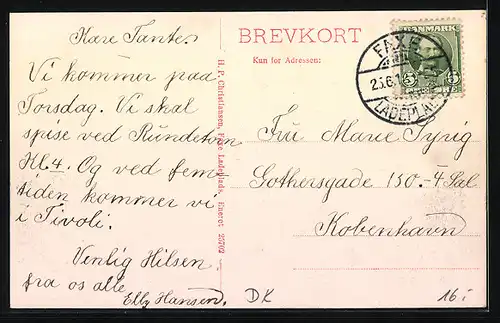 Kære Tante.
Vi kommer paa
Torsdag. Vi skal
spise ved Rundetårn
Kl. 4. Og ved fem
tiden kommer vi
i Tivoli.
Venlig Hilsen
fra os alle
Elly Hansen.
H. P. Christiansen, Faxe Ladeplads. Eneret 20702
BREVKORT
Kun for Adressen:
DANMARK
5
5
FAXE
LADEPLADS
Fru Marie Tyrig
Gothersgade 150.-4 Sal
København
DK
16